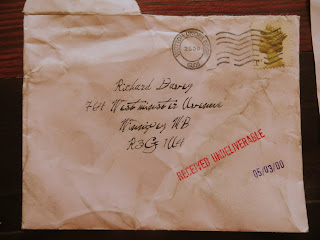 Richard Davey
764 Westminster Avenue
Winnipeg MB
R3G 1A4
RECEIVED UNDELIVERABLE
05/03/00